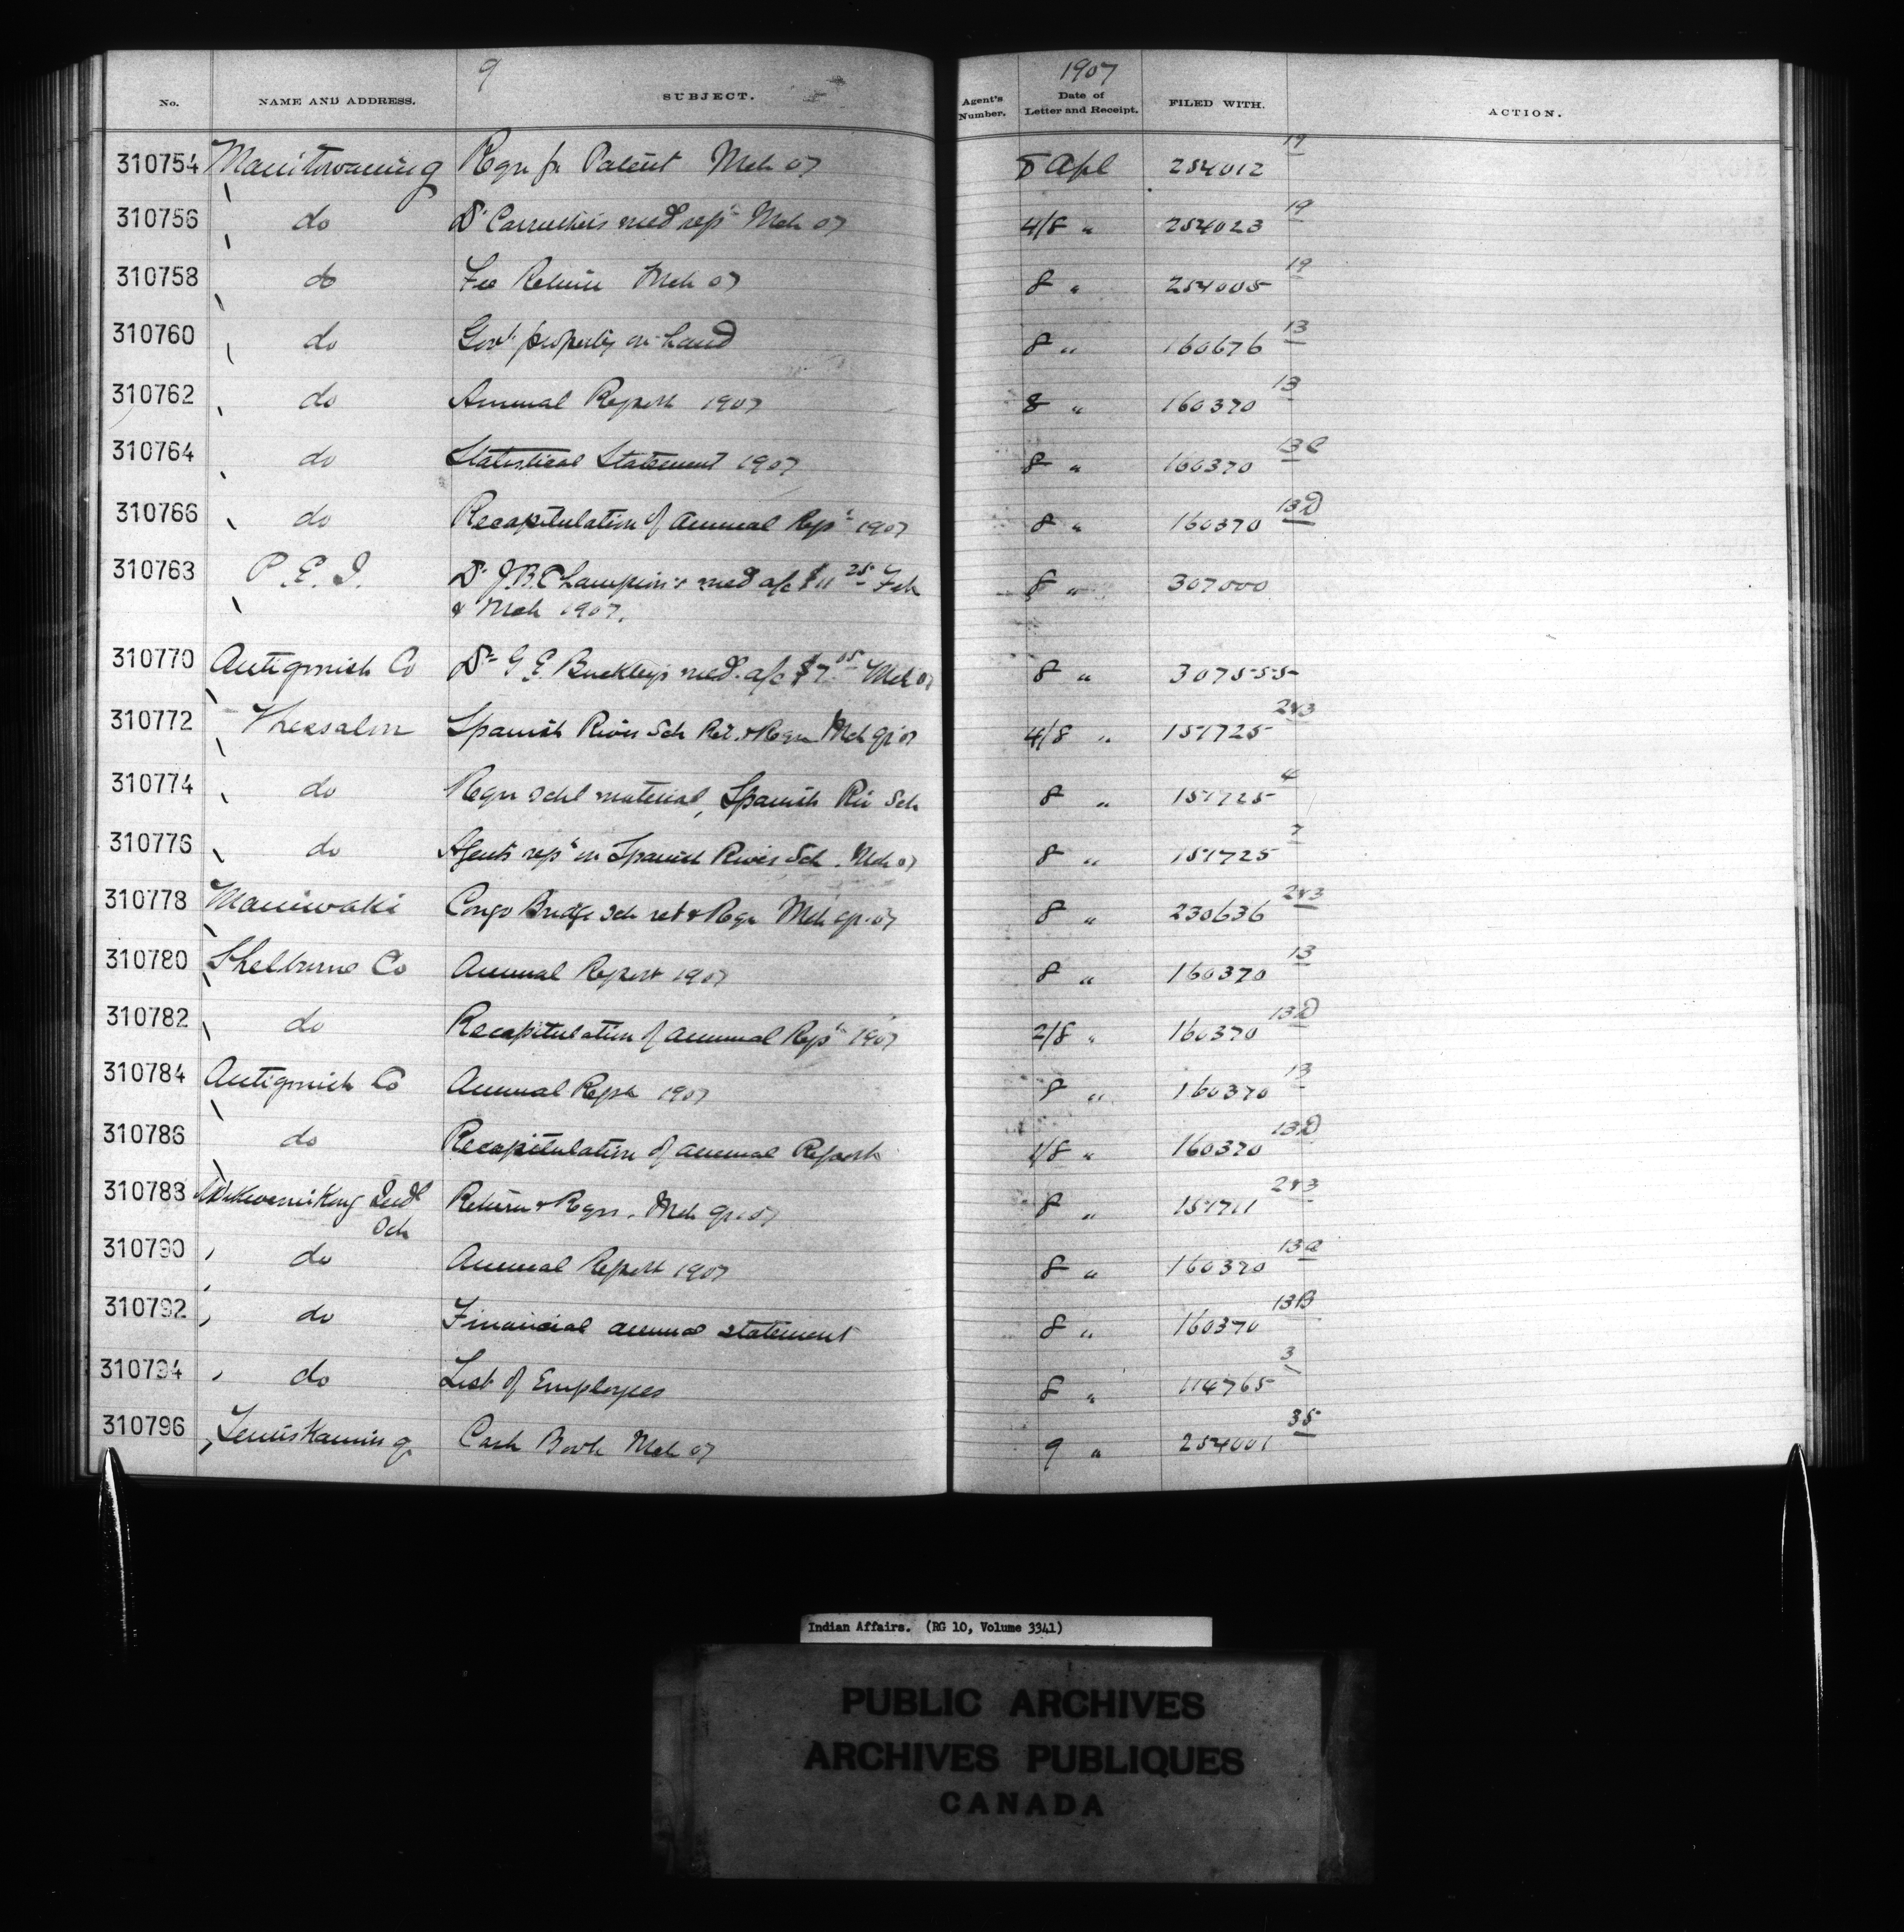 9
1907
No. NAME AND ADDRESS. SUBJECT. Agent's Number. Date of Letter and Receipt. FILED WITH. ACTION.
310754 Manitowaning Reqn for Patent Mch 07 8 Apl 254012 19
310756 do Dr Carruthers med rept Mch 07 4/8 " 254023 19
310758 do Fee Return Mch 07 8 " 254005 19
310760 do Govt property on hand 8 " 160676 13
310762 do Annual Report 1907 8 " 160370 13
310764 do Statistical Statement 1907 8 " 160370 13C
310766 do Recapitulation of Annual Rept 1907 8 " 160370 13D
310763 P.E.I. Dr J.B. Champion's med a/c $11 25 Feb 8 " 307000
& Mch 1907.
310770 Antigonish Co Dr G E Buckley's med. a/c $7. 05 Mch 07 8 " 307555
310772 Thessalon Spanish River Sch Ret. & Reqn Mch qr 07 4/8 " 151725 2&3
310774 do Reqn schl material, Spanish Riv Sch 8 " 151725 4
310776 do Agents rept on Spanish River Sch. Mch 07 8 " 151725 7
310778 Maniwaki Congo Bridge Sch ret & Reqn Mch qr. 07 8 " 230636 2&3
310780 Shelburne Co Annual Report 1907 8 " 160370 13
310782 do Recapitulation of Annual Rept 1907 2/8 " 160370 13D
310784 Antigonish Co Annual Rept 1907 8 " 160370 13
310786 do Recapitulation of Annual Report 1/8 " 160370 13D
310783 Wikwemikong Indl Return & Reqn. Mch qr. 07 8 " 151711 2&3
Sch
310790 do Annual Report 1907 8 " 160370 13a
310792 do Financial annual statement 8 " 160370 13B
310794 do List of Employees 8 " 114765 3
310796 Temiskaming Cash Book Mch 07 9 " 254001 35
Indian Affairs. (RG 10, Volume 3341)
PUBLIC ARCHIVES
ARCHIVES PUBLIQUES
CANADA